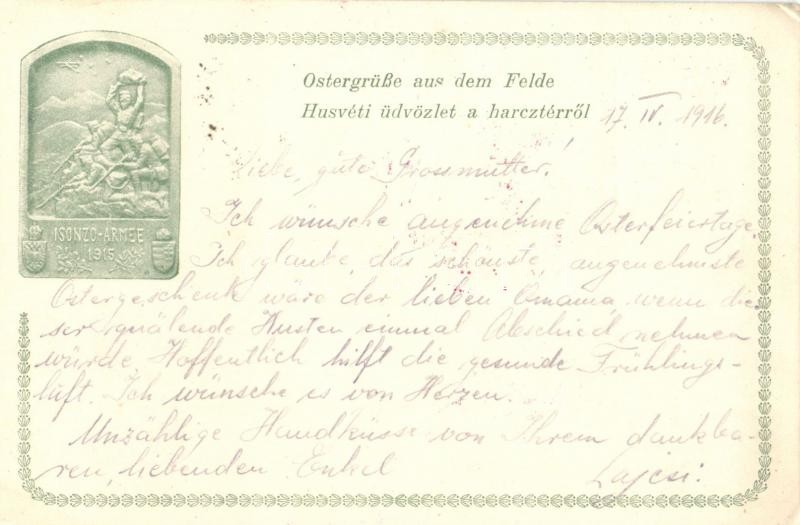 Ostergrüße aus dem Felde
Husvéti üdvözlet a harcztérről 17. IV. 1916.
Liebe, gute Grossmutter!
Ich wünsche angenehme Osterfeiertage.
Ich glaube, das schönste, angenehmste
Ostergeschenk wäre der lieben Omama wenn die-
ser quälende Husten einmal Abschied nehmen
würde. Hoffentlich hilft die gesunde Frühlings-
luft. Ich wünsche es von Herzen.
Unzählige Handküsse von Ihrem dankba-
ren, liebenden Enkel
Lajcsi.
ISONZO-ARMEE
1915